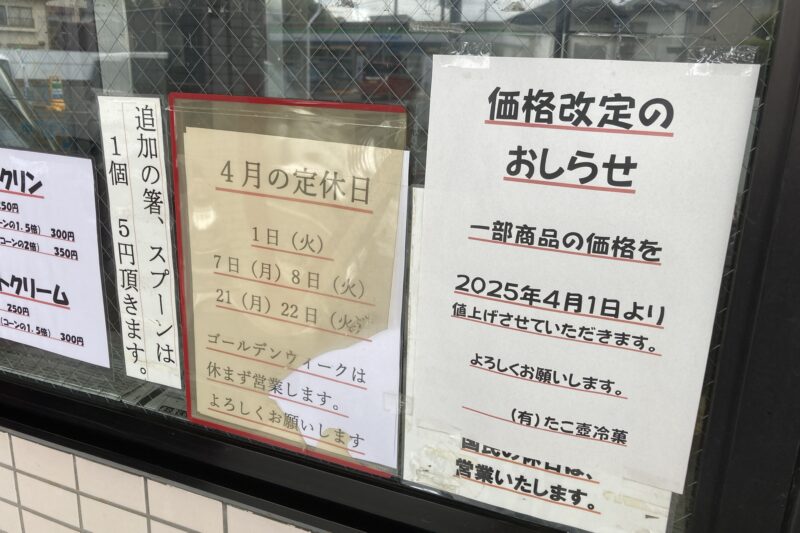 クリン
250円
コーンの1.5倍) 300円
コーンの2倍) 350円
トクリーム
250円
(コーンの1.5倍) 300円
追加の箸、スプーンは
1個 5円頂きます。
4月の定休日
1日(火)
7日(月)8日(火)
21(月)22日(火)
ゴールデンウィークは
休まず営業します。
よろしくお願いします
価格改定の
おしらせ
一部商品の価格を
2025年4月1日より
値上げさせていただきます。
よろしくお願いします。
(有)たこ壺冷菓
国民の休日は、
営業いたします。